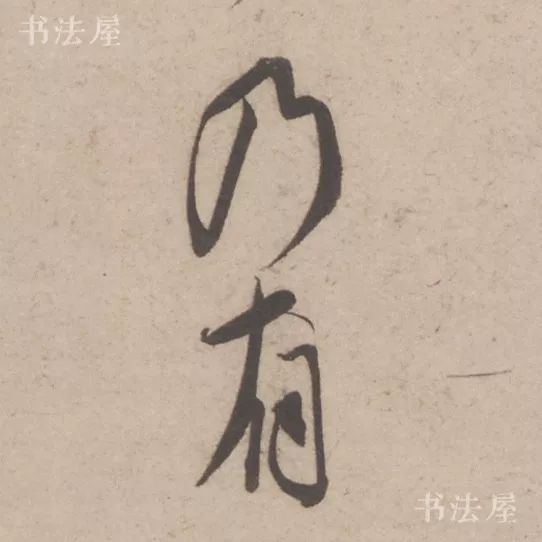 书法屋
乃
有
书法屋